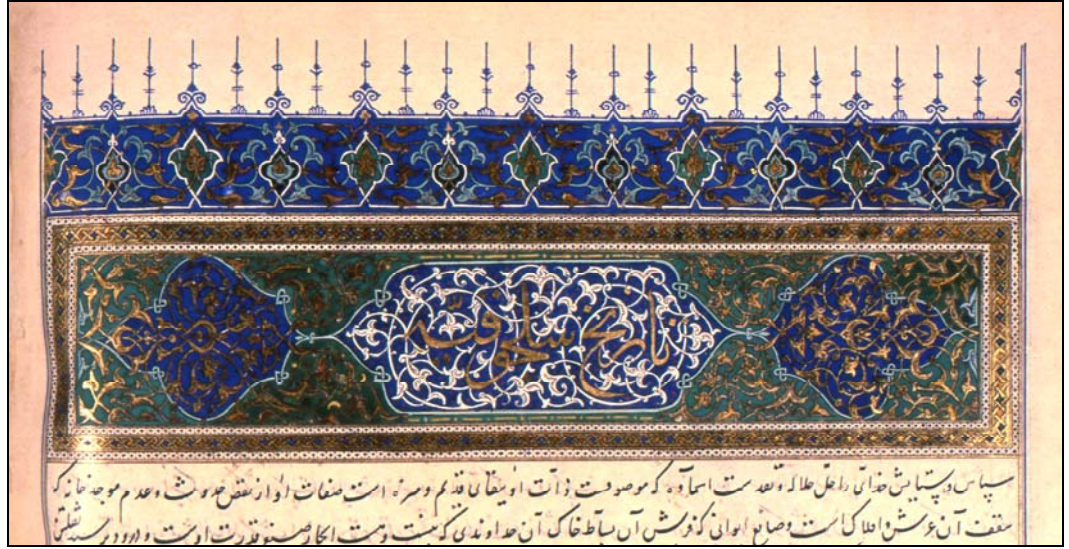 تاریخ سلجوقیه
سپاس و ستایش خدائی را جل جلاله و تقدست اسماوه که موصوفست ذات او ببقای قدیم و منزه است صفات او از نقص حدوث و عدم موجد
سقف آن عرش افلاک است و صانع ایوانی که فرش آن بساط خاک آن خداوندی که نیست و هست قدرت اوست